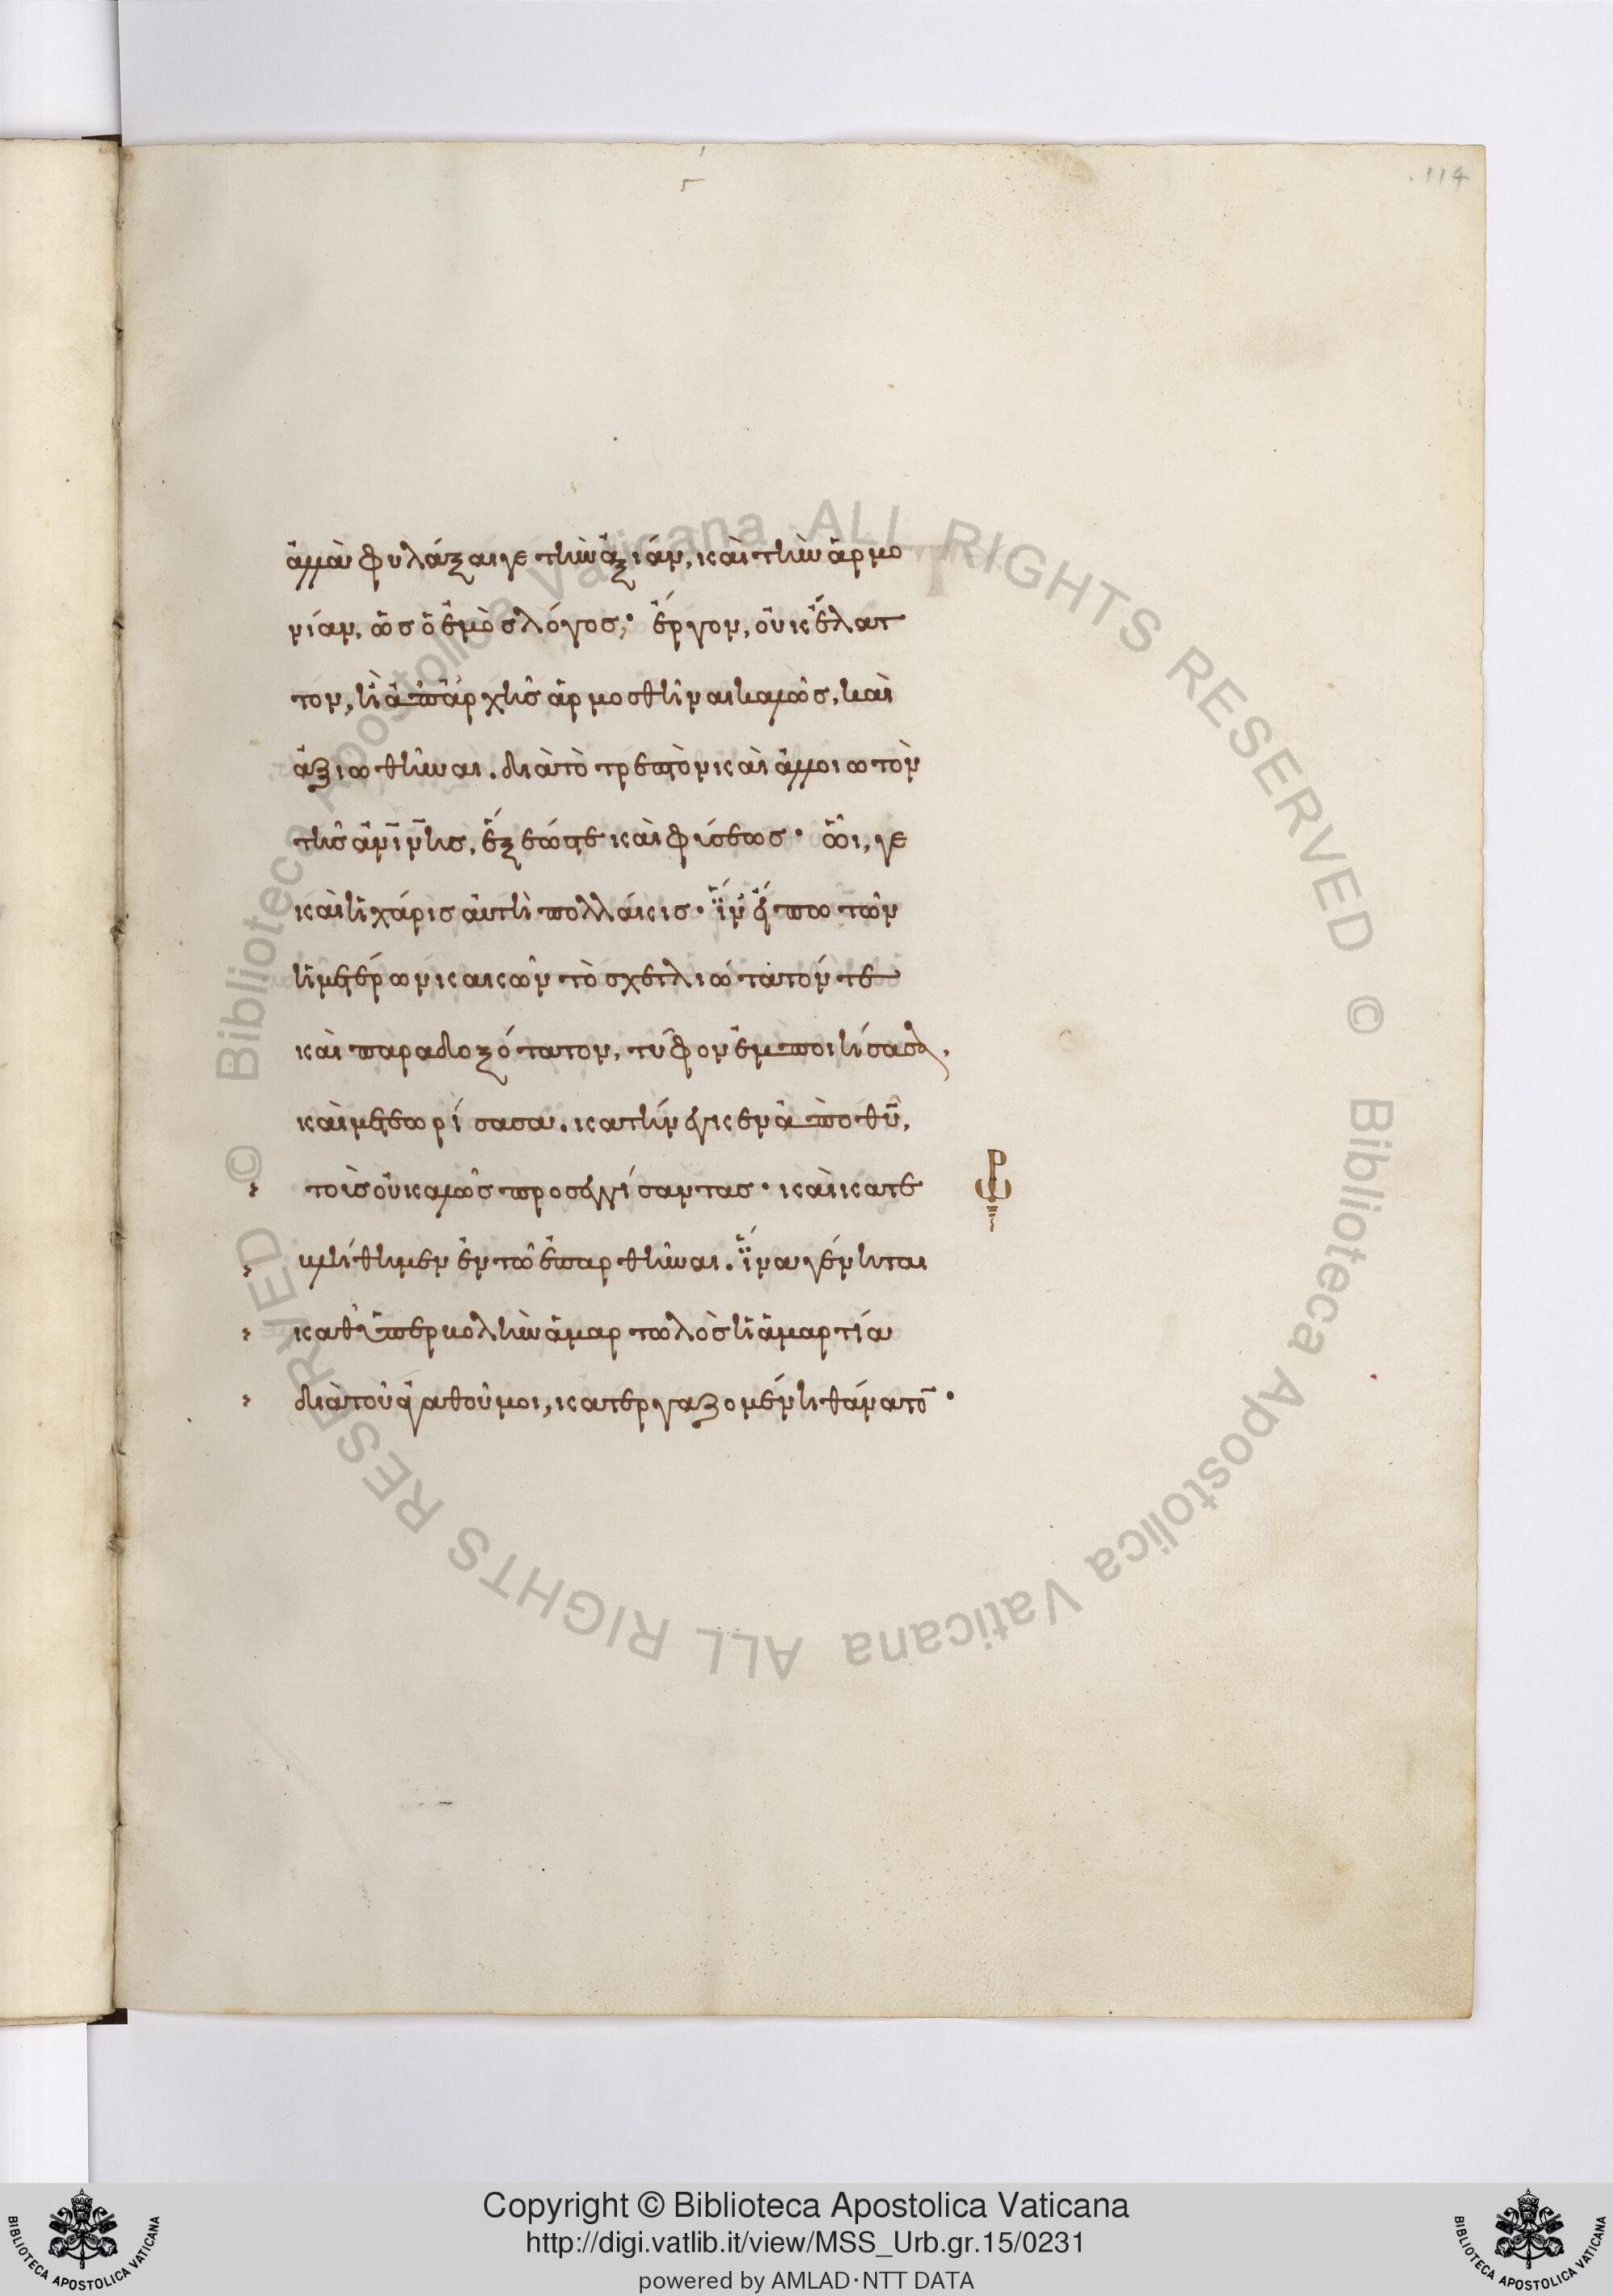 114
ἀλλὰ φυλάξαι γε τὴν ἀξίαν, καὶ τὴν ἁρμο
νίαν, ὡς ὁ ἐμὸς λόγος, ἔργον, οὐκ ἔλατ
τον, ἢ ἀπ' ἀρχῆς ἁρμοσθῆναι καλῶς, καὶ
ἀξιωθῆναι. διὰ τὸ τρεπτὸν καὶ ἀλλοιωτὸν
τῆς ἀνίνης, ἕξεώς τε καὶ φύσεως· ὧι, γε
καὶ ἡ χάρις αὐτὴ πολλάκις· ἵν' εἴπω τῶν
ἡμετέρων κακῶν τὸ σχετλιώτατόν τε
καὶ παραδοξότατον, τῦφον ἐμποιήσασα,
καὶ μετεωρίσασα. κατήνεγκεν ἀπὸ θῡ,
τοὺς οὐ καλῶς προσεγγίσαντας· καὶ κατε
βλήθημεν ἐν τῶ ἐπαρθῆναι. ἵνα γένηται
καθ' ὑπερβολὴν ἁμαρτωλὸς ἡ ἁμαρτία
διὰ τοῦ ἀγαθοῦ μοι, κατεργαζομένη θάνατο̄·
Copyright © Biblioteca Apostolica Vaticana
http://digi.vatlib.it/view/MSS_Urb.gr.15/0231
powered by AMLAD·NTT DATA
BIBLIOTECA APOSTOLICA VATICANA
BIBLIOTECA APOSTOLICA VATICANA
© Biblioteca Apostolica Vaticana ALL RIGHTS RESERVED
© Biblioteca Apostolica Vaticana ALL RIGHTS RESERVED